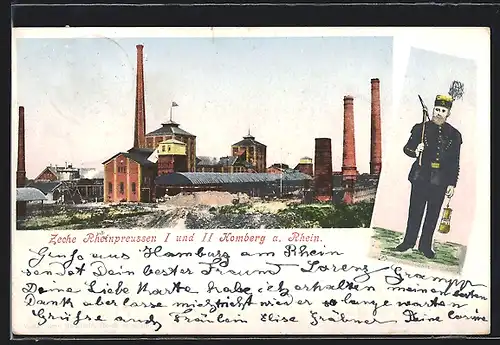 Zeche Rheinpreussen I und II Homberg a. Rhein.
Gruss aus Hamburg am Rhein
sendet Dein bester Freund Lorenz Grampp
Deine Liebe Karte habe ich erhalten meinen besten
Dank aber lasse mich nicht wieder so lange warten
Grüsse auch Fräulein Elise Gräbner Deine